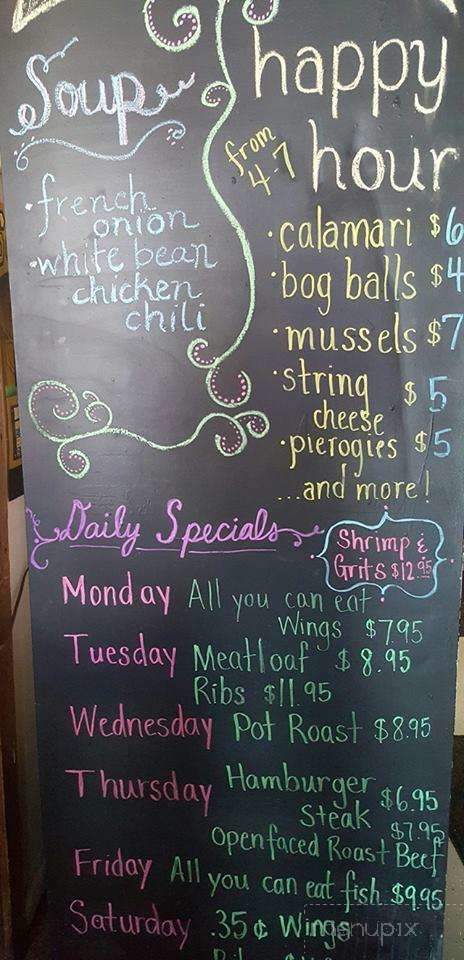 Soup
·french
onion
·white bean
chicken
chili
happy
hour
from
4-7
·calamari $6
·bog balls $4
·mussels $7
·string
cheese $5
·pierogies $5
...and more!
Daily Specials
Shrimp &
Grits $12.95
Monday All you can eat
Wings $7.95
Tuesday Meatloaf $8.95
Ribs $11.95
Wednesday Pot Roast $8.95
Thursday Hamburger
Steak $6.95
Openfaced Roast Beef $7.95
Friday All you can eat fish $9.95
Saturday .35¢ Wings